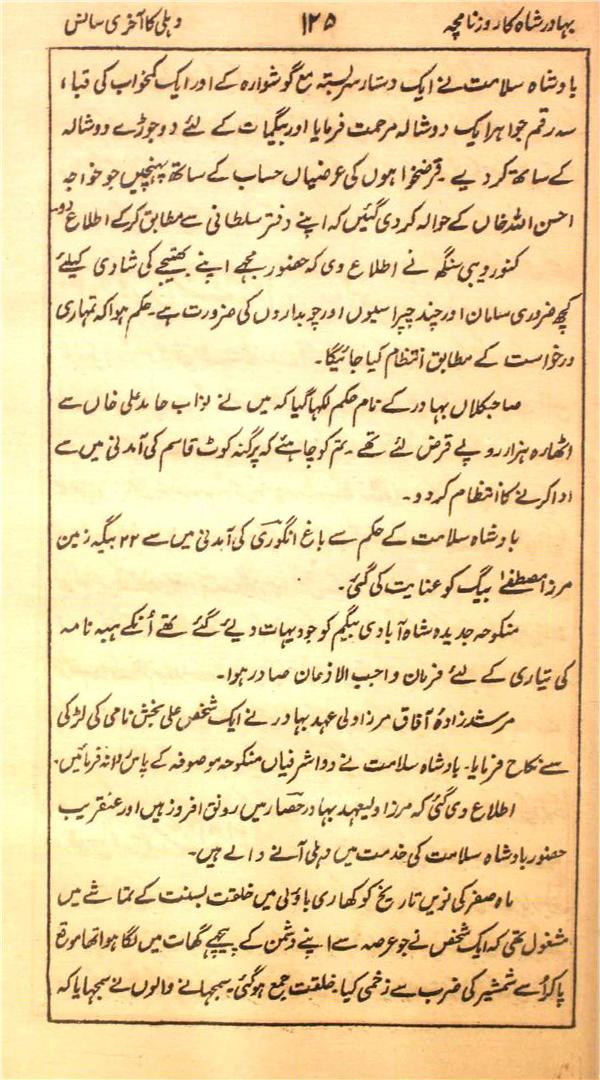 بہادر شاہ کا روزنامچہ ۱۲۵ دہلی کا آخری سانس
بادشاہ سلامت نے ایک دستار سربستہ مع گوشوارہ کے اور ایک کمخواب کی قبا،
سہ رقم جواہر ایک دوشالہ مرحمت فرمایا اور بیگمات کے لئے دو جوڑے دوشالہ
کے ساتھ کر دیے۔ قرضخواہوں کی عرضیاں حساب کے ساتھ پہنچیں جو خواجہ
احسن اللہ خاں کے حوالہ کر دی گئیں کہ اپنے دفتر سلطانی سے مطابق کر کے اطلاع دو۔
کنور دیبی سنگھ نے اطلاع دی کہ حضور مجھے اپنے بھتیجے کی شادی کیلئے
کچھ ضروری سامان اور چند چپراسیوں اور چوبداروں کی ضرورت ہے۔ حکم ہوا کہ تمہاری
درخواست کے مطابق انتظام کیا جائیگا۔
صاحبکلاں بہادر کے نام حکم لکھا گیا کہ میں نے نواب حامد علی خاں سے
اٹھارہ ہزار روپے قرض لئے تھے۔ تم کو چاہئے کہ پرگنہ کوٹ قاسم کی آمدنی میں سے
ادا کرنے کا انتظام کر دو۔
بادشاہ سلامت کے حکم سے باغ انگوری کی آمدنی میں سے ۲۲ بیگہ زمین
مرزا مصطفےٰ بیگ کو عنایت کی گئی۔
منکوحہ جدیدہ شاہ آبادی بیگم کو جو دیہات دیئے گئے تھے اُنکے ہبہ نامہ
کی تیاری کے لئے فرمان واجب الاذعان صادر ہوا۔
مرشدزادۂ آفاق مرزا ولی عہد بہادر نے ایک شخص علی بخش نامی کی لڑکی
سے نکاح فرمایا۔ بادشاہ سلامت نے دو اشرفیاں منکوحہ موصوفہ کے پاس روانہ فرمائیں۔
اطلاع دی گئی کہ مرزا ولیعہد بہادر حصار میں رونق افروز ہیں اور عنقریب
حضور بادشاہ سلامت کی خدمت میں دہلی آنے والے ہیں۔
ماہ صفر کی نویں تاریخ کو کھاری باؤلی میں خلقت بسنت کے تماشے میں
مشغول تھی کہ ایک شخص نے جو عرصہ سے اپنے دشمن کے پیچھے گھات میں لگا ہوا تھا موقع
پا کر اُسے شمشیر کی ضرب سے زخمی کیا۔ خلقت جمع ہو گئی۔ سمجھانے والوں نے سمجھایا کہ